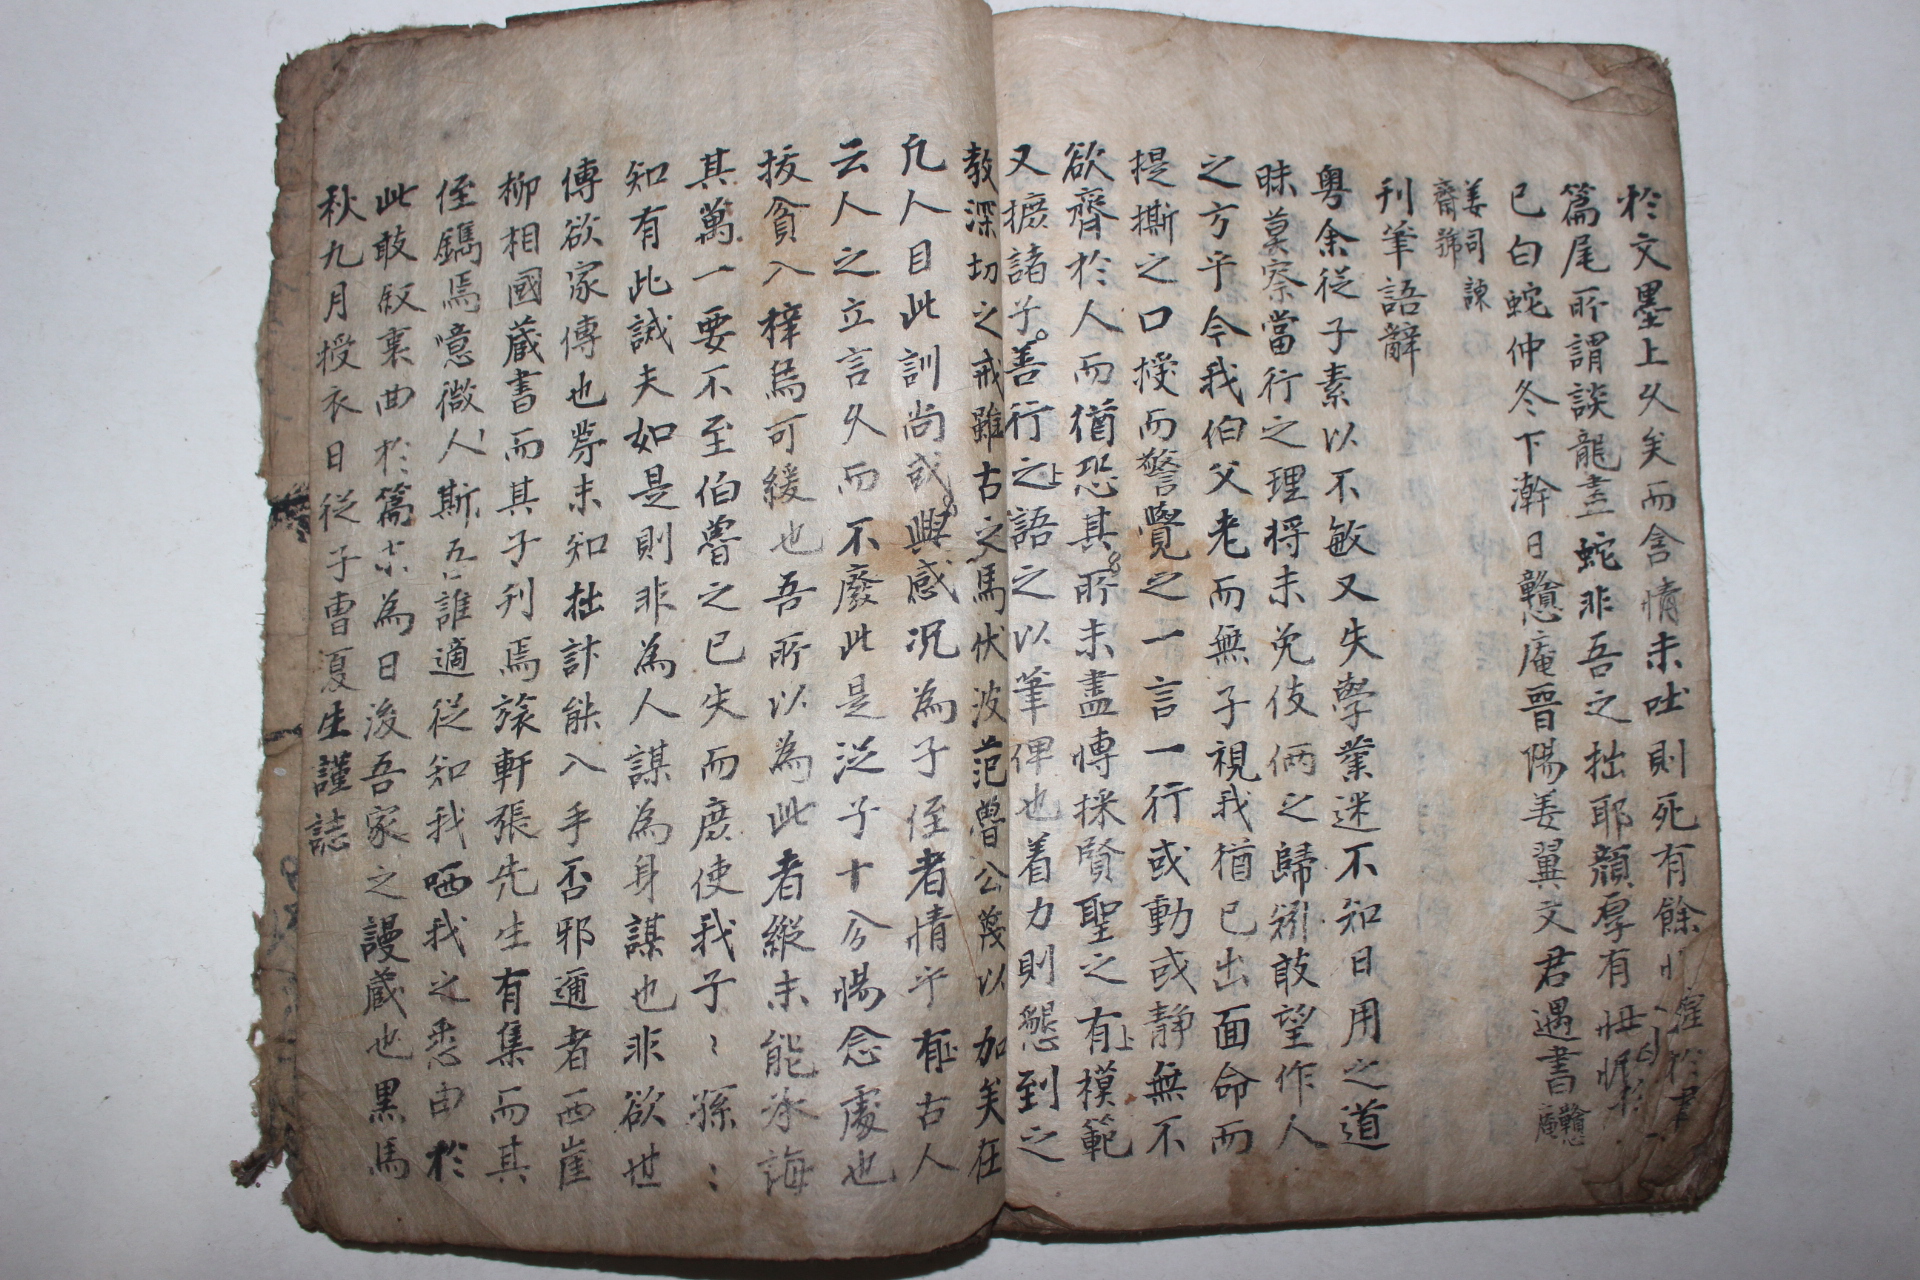 於文墨上久矣而含情未吐則死有餘
篇尾所謂談龍畫蛇非吾之拙耶顔厚有
已白蛇仲冬下澣日戇庵晋陽姜翼文君遇書戇庵
姜司諫齋號
刊筆語辭
粤余從子素以不敏又失學業迷不知日用之道
昧莫察當行之理將未免伎倆之歸矧敢望作人
之方乎今我伯父老而無子視我猶已出面命而
提撕之口授而警覺之一言一行或動或靜無不
欲齊於人而猶恐其所未盡博採賢聖之有模範
又摭諸子善行之語之以筆俾也着力則懇到之
教深切之戒雖古之馬伏波范魯公蔑以加矣在
凡人目此訓尚或興感况為子侄者情乎古人
云人之立言久而不廢此是從子十分惕念處也
拔貧入梓烏可緩也吾所以為此者縱未能泳海
其萬一要不至伯魯之已失而庶使我子〻孫〻
知有此誡夫如是則非為人謀為身謀也非欲世
傳欲家傳也第未知拙計能入手否邪邇者西崖
柳相國蔵書而其子刋焉旅軒張先生有集而其
侄鐫焉噫微人斯吾誰適從知我哂我之悉由於
此敢叙裏曲於篇末為日後吾家之謾蔵也黒馬
秋九月授衣日從子曺夏生謹誌